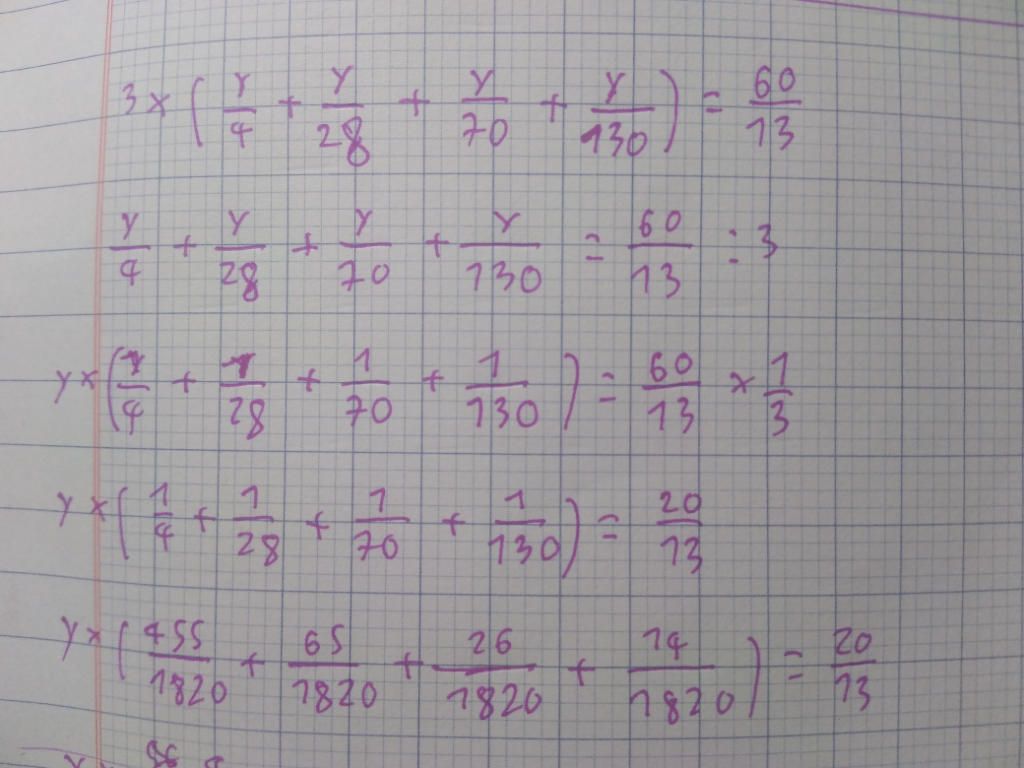 3 × ( y/4 + y/28 + y/70 + y/130 ) = 60/13
y/4 + y/28 + y/70 + y/130 = 60/13 : 3
y × ( 1/4 + 1/28 + 1/70 + 1/130 ) = 60/13 × 1/3
y × ( 1/4 + 1/28 + 1/70 + 1/130 ) = 20/13
y × ( 455/1820 + 65/1820 + 26/1820 + 14/1820 ) = 20/13